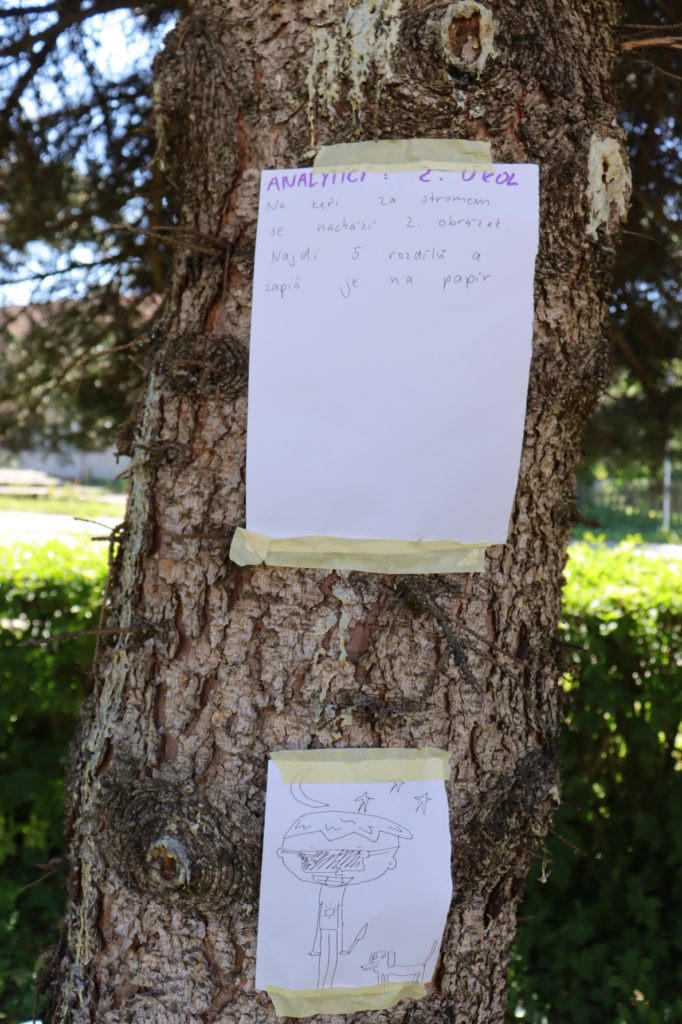 ANALYTICI : 2. ÚKOL
Na keři za stromem
se nachází 2. obrázek.
Najdi 5 rozdílů a
zapiš je na papír